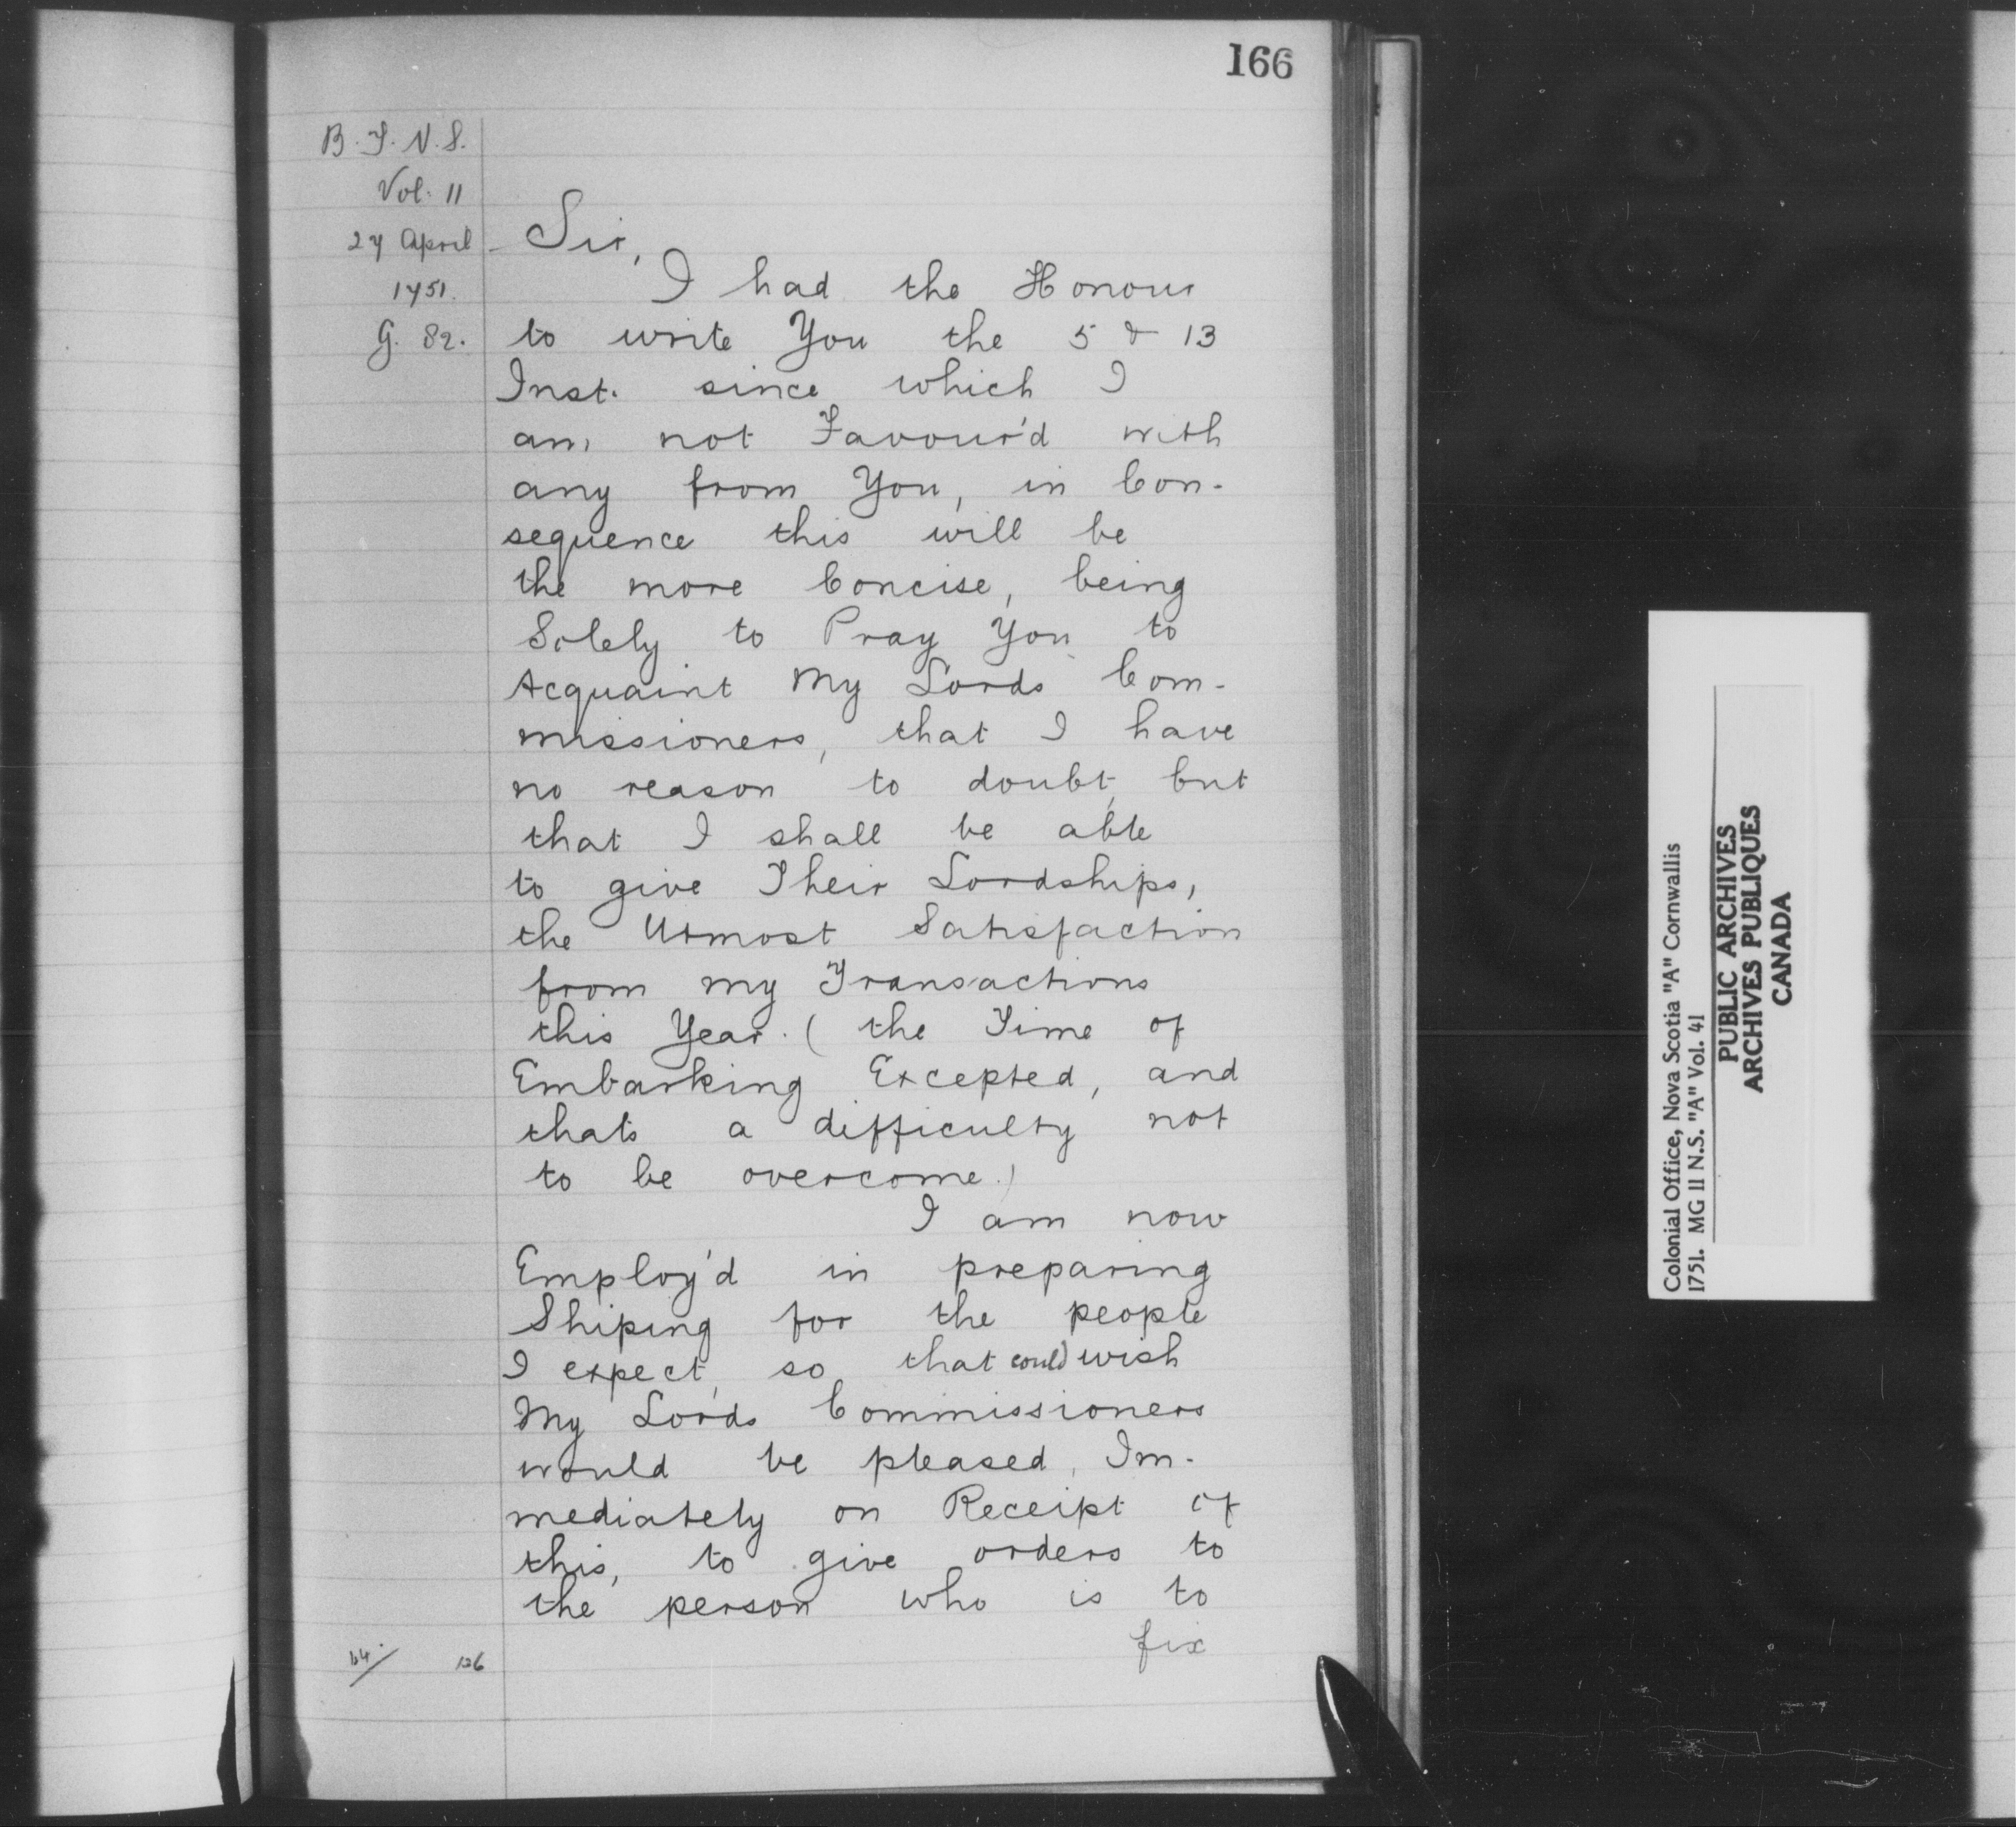 166
B.T.N.S.
Vol. 11
27 April
1751.
G. 82.
Sir,
I had the Honour
to write You the 5 & 13
Inst. since which I
am not Favour'd with
any from You, in Con-
sequence this will be
the more Concise, being
Solely to Pray You to
Acquaint My Lords Com-
missioners, that I have
no reason to doubt, but
that I shall be able
to give Their Lordships,
the Utmost Satisfaction
from my Transactions
this Year. (the Time of
Embarking Excepted, and
thats a difficulty not
to be overcome.)
I am now
Employ'd in preparing
Shiping for the people
I expect, so that could wish
My Lords Commissioners
would be pleased, Im-
mediately on Receipt of
this, to give orders to
the person who is to
fix
126
Colonial Office, Nova Scotia "A" Cornwallis
1751. MG 11 N.S. "A" Vol. 41
PUBLIC ARCHIVES
ARCHIVES PUBLIQUES
CANADA